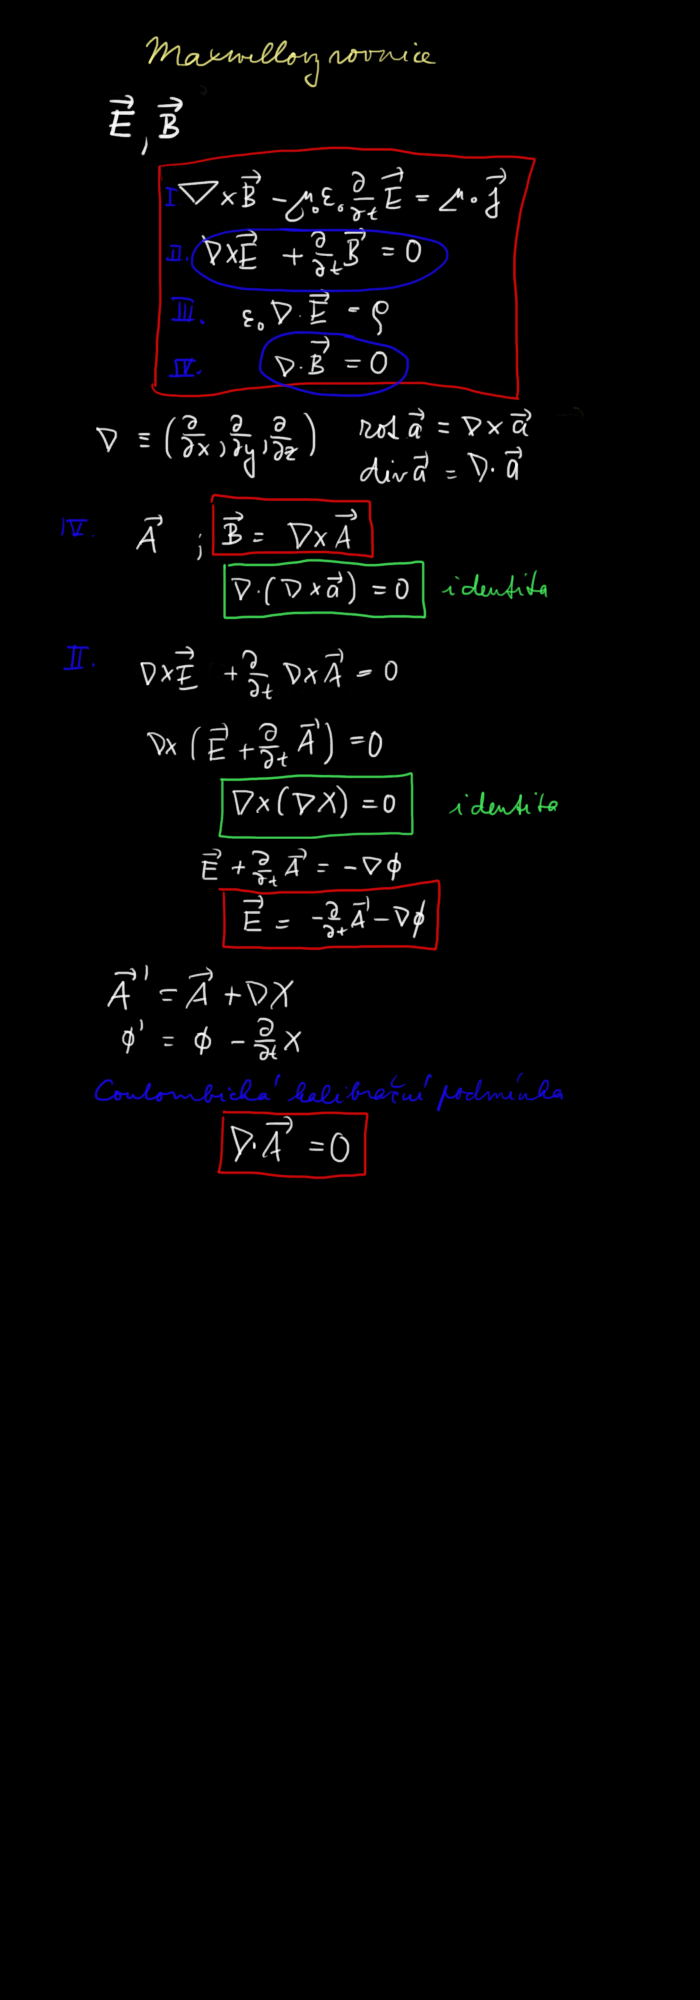 Maxwellovy rovnice
E⃗, B⃗
I ∇×B⃗ − μ₀ε₀ ∂/∂t E⃗ = μ₀ j⃗
II. ∇×E⃗ + ∂/∂t B⃗ = 0
III. ε₀ ∇·E⃗ = ρ
IV. ∇·B⃗ = 0
∇ ≡ (∂/∂x, ∂/∂y, ∂/∂z) rot a⃗ = ∇×a⃗
div a⃗ = ∇·a⃗
IV. A⃗ ; B⃗ = ∇×A⃗
∇·(∇×a⃗) = 0 identita
II. ∇×E⃗ + ∂/∂t ∇×A⃗ = 0
∇×(E⃗ + ∂/∂t A⃗) = 0
∇×(∇X) = 0 identita
E⃗ + ∂/∂t A⃗ = −∇ϕ
E⃗ = −∂/∂t A⃗ − ∇ϕ
A⃗' = A⃗ + ∇X
ϕ' = ϕ − ∂/∂t X
Coulombická kalibrační podmínka
∇·A⃗ = 0